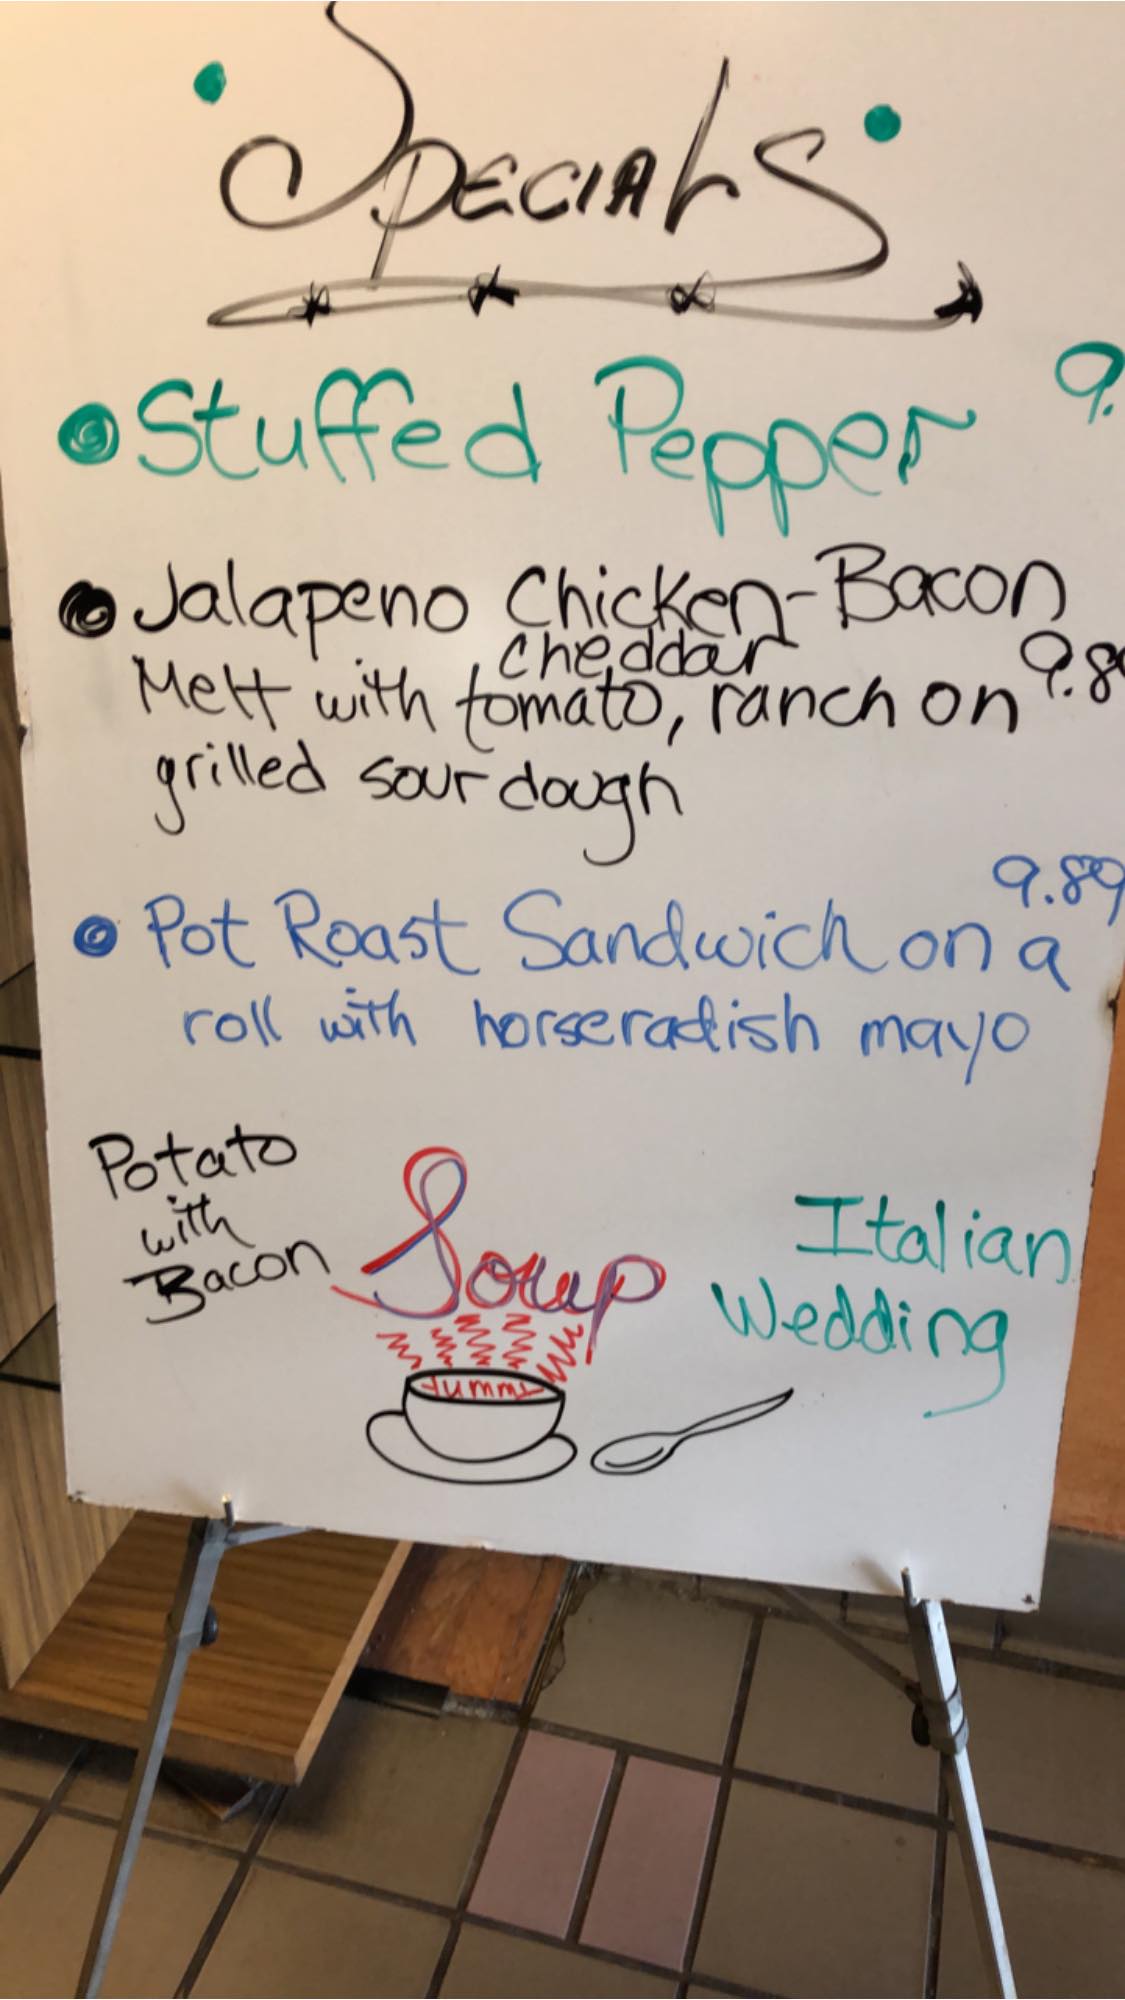 Specials
Stuffed Pepper 9.
Jalapeno Chicken-Bacon
cheddar
Melt with tomato, ranch on 9.8
grilled sourdough
9.89
Pot Roast Sandwich on a
roll with horseradish mayo
Potato
with
Bacon
Soup
Italian
Wedding
Yummy